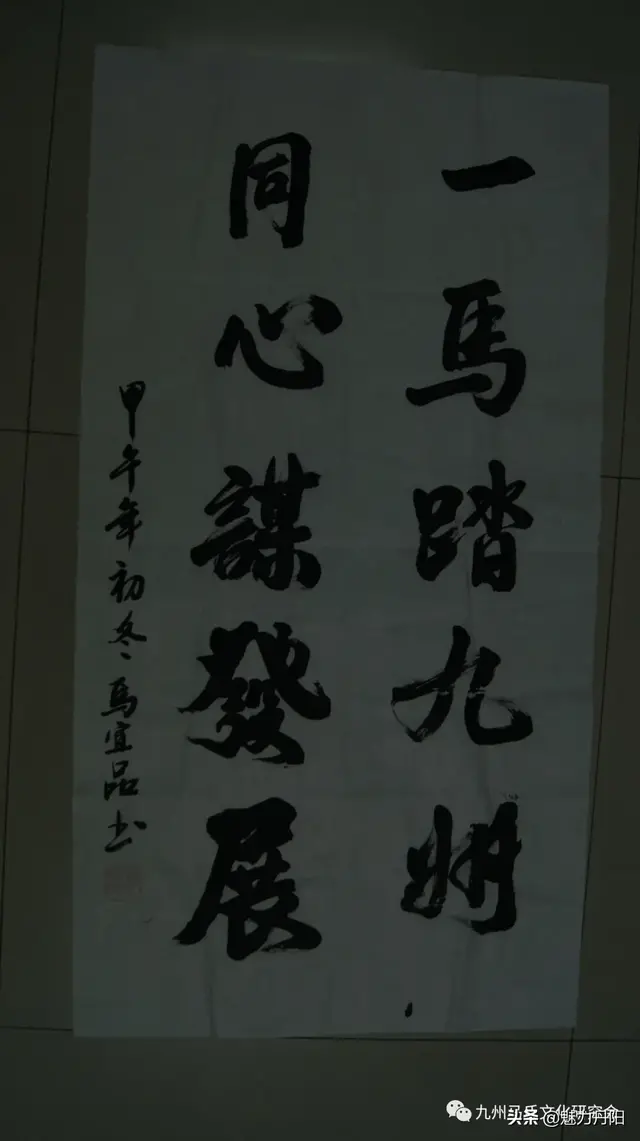 一馬踏九州
同心謀發展
甲午年初冬馬宜品书
九州马氏文化研究会
头条@魅力丹阳